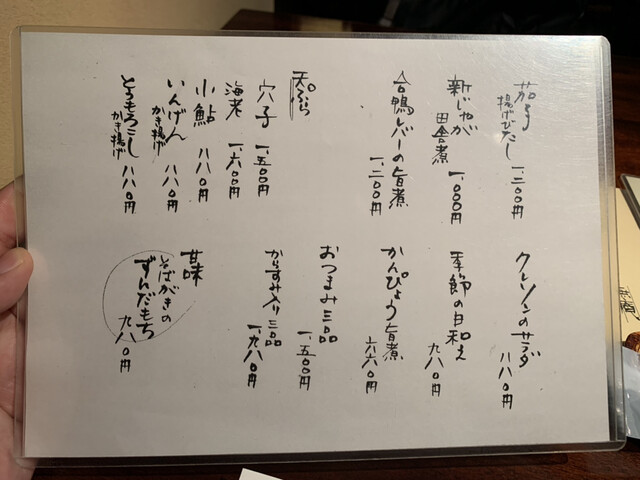 茄子
揚げびたし 一、二〇〇円
新じゃが
田舎煮 一、〇〇〇円
合鴨レバーの旨煮 一、二〇〇円
天ぷら
穴子 一、五〇〇円
海老 一、六〇〇円
小鮎 八八〇円
いんげん
かき揚げ 八八〇円
とうもろこし
かき揚げ 八八〇円
クレソンのサラダ 八八〇円
季節の白和え 九八〇円
かんぴょう旨煮 六六〇円
おつまみ三品 一、五〇〇円
からすみ入り三品 一、九八〇円
甘味
そばがきの
ずんだもち 九八〇円